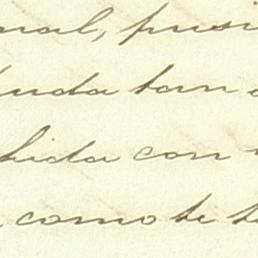 nal, pusi
duda tan
hida con
, como te t